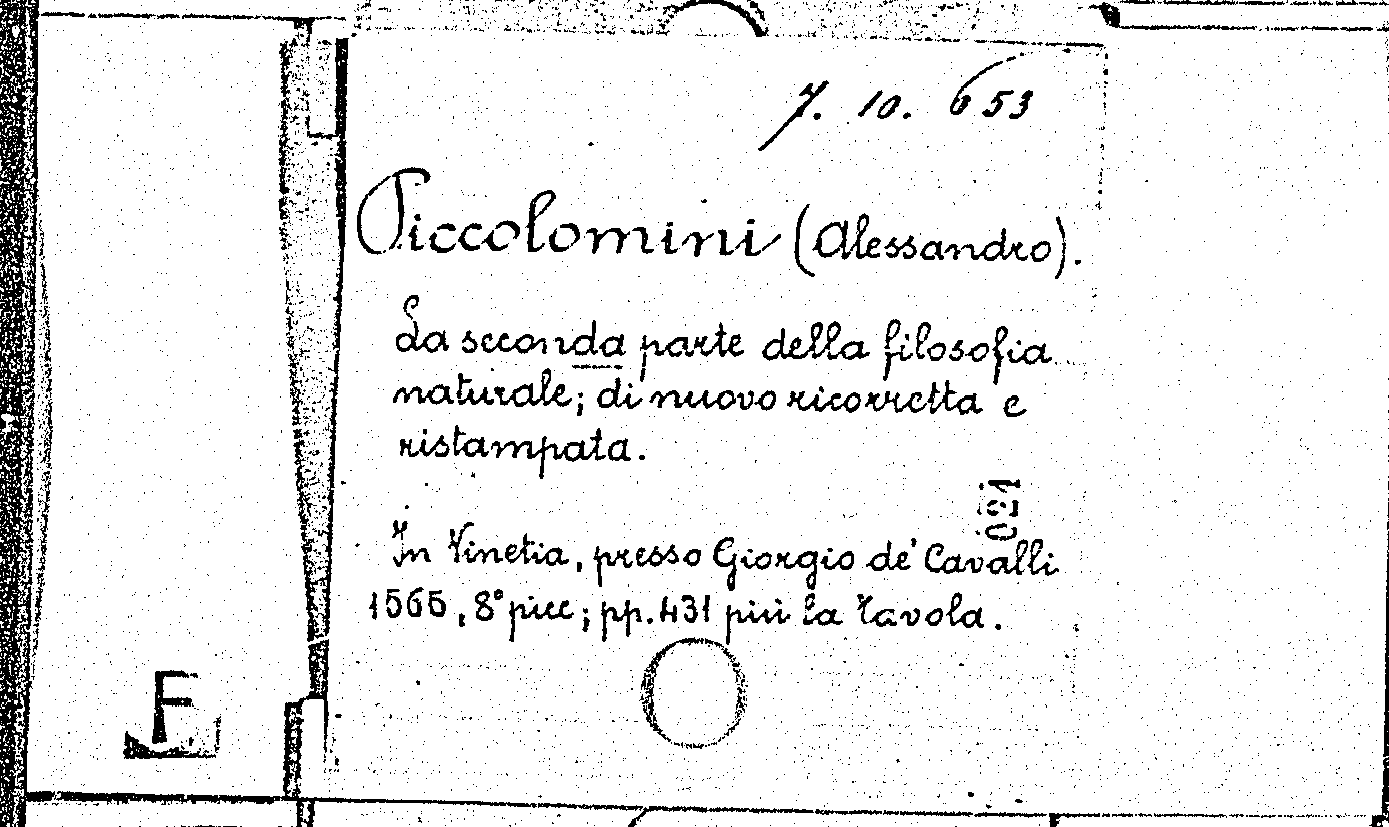 7. 10. 653
Piccolomini (Alessandro).
La seconda parte della filosofia
naturale; di nuovo ricorretta e
ristampata.
021
In Vinetia, presso Giorgio de' Cavalli
1565, 8° picc; pp. 431 più la Tavola.
F